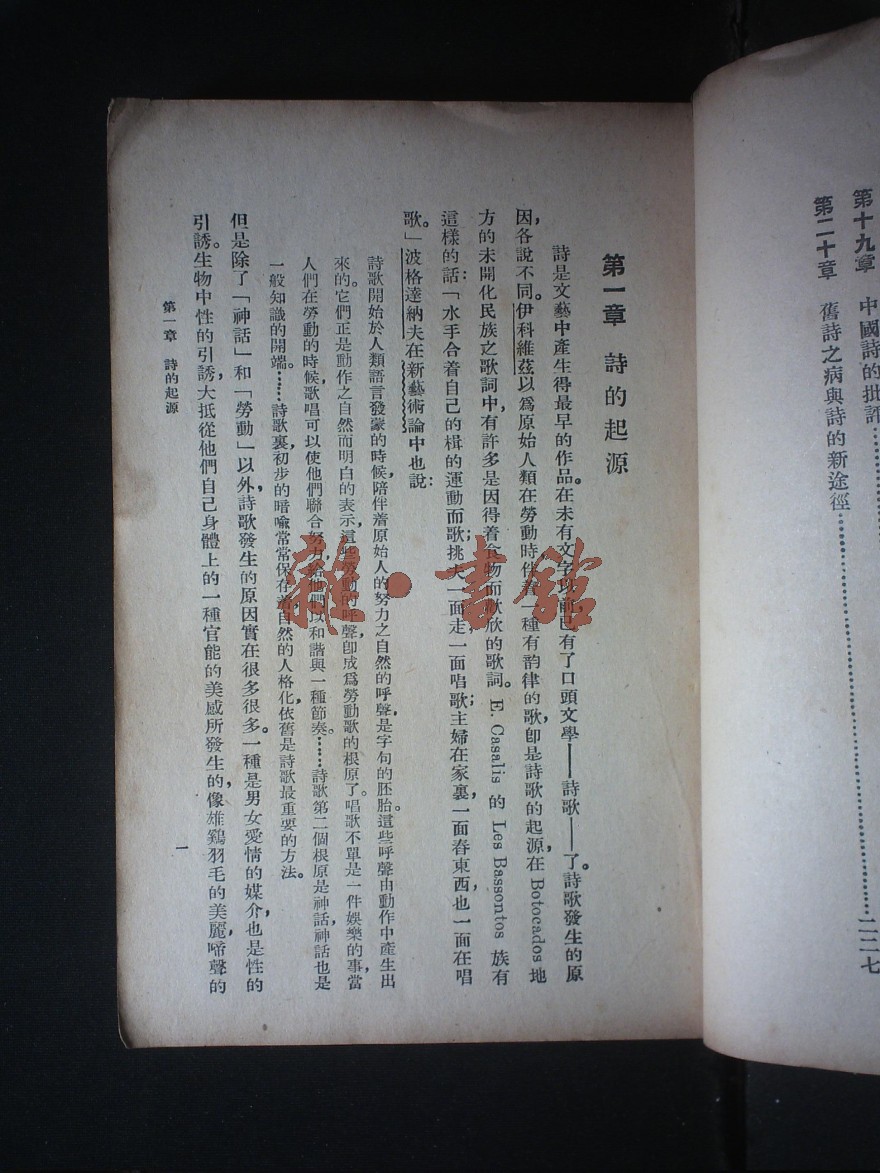 第十九章　中國詩的批評……
第二十章　舊詩之病與詩的新途徑……二二七
第一章　詩的起源
詩是文藝中產生得最早的作品。在未有文字以前已有了口頭文學——詩歌——了。詩歌發生的原
因，各說不同。伊科維茲以爲原始人類在勞動時伴着一種有韵律的歌卽是詩歌的起源，在 Botocados 地
方的未開化民族之歌詞中，有許多是因得着食物而歌欣的歌詞。E. Casalis 的 Les Bassontos 族有
這樣的話：「水手合着自己的楫的運動而歌；挑夫一面走，一面唱歌；主婦在家裏，一面舂東西，也一面在唱
歌。」波格達納夫在新藝術論中也說：
詩歌開始於人類語言發蒙的時候，陪伴着原始人的努力之自然的呼聲，是字句的胚胎。這些呼聲由動作中產生出
來的。它們正是動作之自然而明白的表示，這些勞動的呼聲卽成爲勞動歌的根原了。唱歌不單是一件娛樂的事，當
人們在勞動的時候，歌唱可以使他們聯合努力，給他們以和諧與一種節奏。……詩歌第二個根原是神話，神話也是
一般知識的開端。……詩歌裏初步的暗喩常常保存着，自然的人格化，依舊是詩歌最重要的方法。
但是除了「神話」和「勞動」以外，詩歌發生的原因實在很多很多。一種是男女愛情的媒介，也是性的
引誘。生物中性的引誘，大抵從他們自己身體上的一種官能的美感所發生的，像雄鷄羽毛的美麗，啼聲的
第一章　詩的起源
一
雜·書館